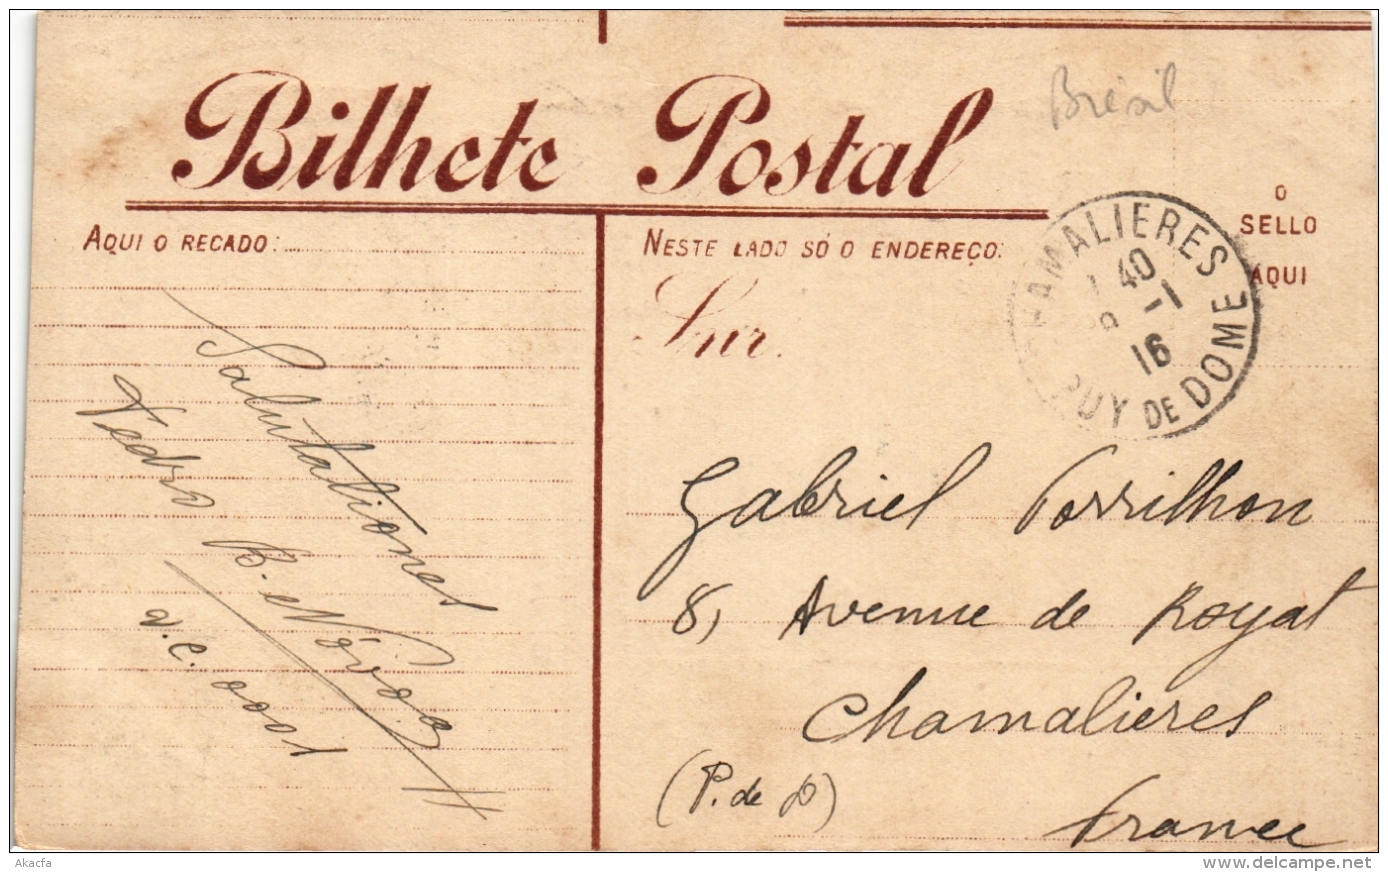 Bilhete Postal
Brésil
AQUI O RECADO:
NESTE LADO SÓ O ENDEREÇO:
O
SELLO
AQUI
Snr.
CHAMALIERES
40
-1
16
PUY DE DOME
Salutationes
Pedro B. e Nóvoa
Gabriel Torrilhon
8, Avenue de Royat
Chamalieres
(P. de D)
France
Akacfa
www.delcampe.net